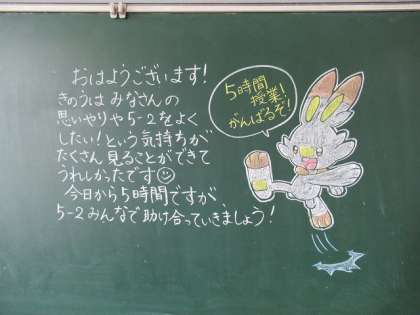 おはようございます!
きのうは みなさんの
思いやりや5-2をよく
したい!という気持ちが
たくさん見ることができて
うれしかったです
今日から5時間ですが
5-2みんなで助け合っていきましょう!
5時間
授業!
がんばるぞ!